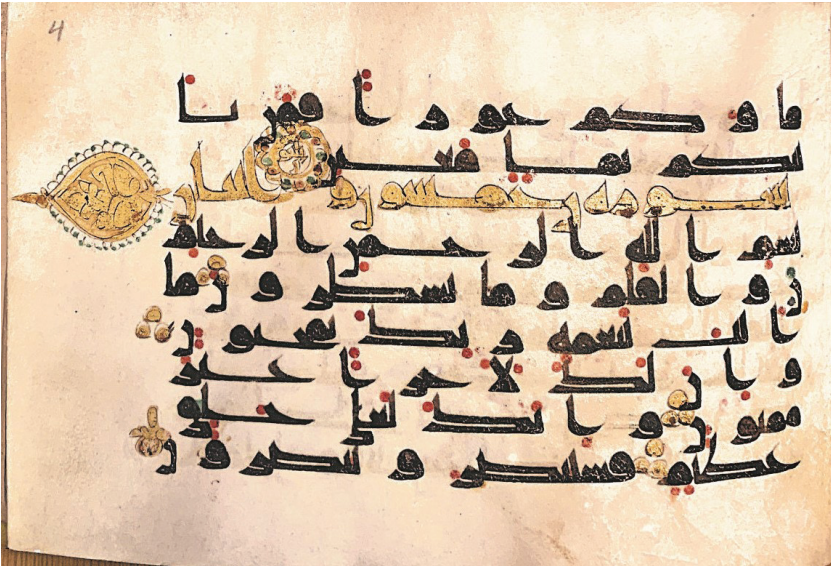 4
ماوكم غورا فمن يا
تيكم بما معين
بسم الله الرحمن الرحيم
ن والقلم وما يسطرون ما
انت بنعمة ربك بمجنون
وان لك لاجرا غير
ممنون وانك لعلى خلق
عظيم فستبصر ويبصرون